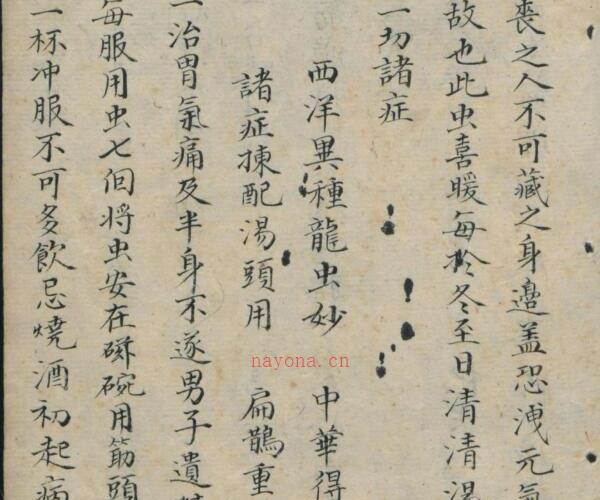 喪之人不可藏之身邉盖恐洩元氣
故也此虫喜暖每於冬至日清清湯
一切諸症
西洋異種龍虫妙 中華得
諸症揀配湯頭用 扁鵲重
一治胃氣痛及半身不遂男子遺
每服用虫七個将虫安在磁碗用筯頭
一杯冲服不可多飲忌燒酒初起病
nayona.cn